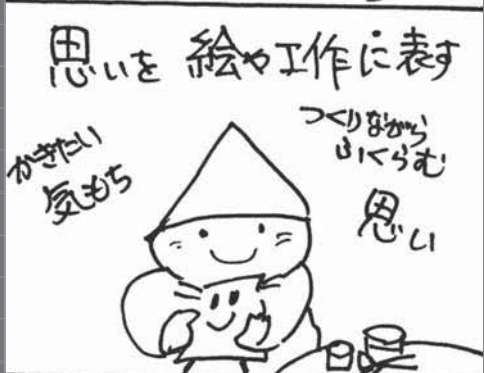 思いを 絵や工作に表す
かきたい
気もち
つくりながら
ふくらむ
思い